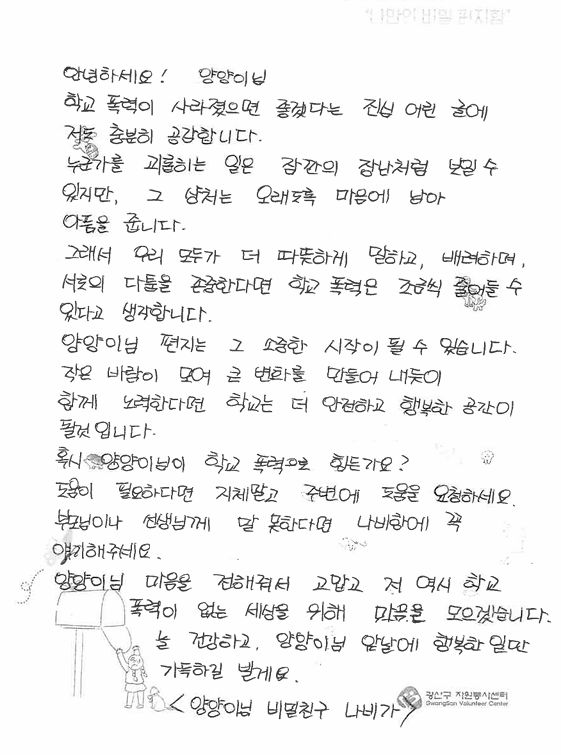 "나만의 비밀 편지함"
안녕하세요! 양양이님
학교 폭력이 사라졌으면 좋겠다는 진심 어린 글에
저도 충분히 공감합니다.
누군가를 괴롭히는 일은 잠깐의 장난처럼 보일 수
있지만, 그 상처는 오래도록 마음에 남아
아픔을 줍니다.
그래서 우리 모두가 더 따뜻하게 말하고, 배려하며,
서로의 다름을 존중한다면 학교 폭력은 조금씩 줄어들 수
있다고 생각합니다.
양양이님 편지는 그 소중한 시작이 될 수 있습니다.
작은 바람이 모여 큰 변화를 만들어 내듯이
함께 노력한다면 학교는 더 안전하고 행복한 공간이
될것입니다.
혹시 양양이님이 학교 폭력으로 힘든가요?
도움이 필요하다면 지체말고 주변에 도움을 요청하세요.
부모님이나 선생님께 말 못한다면 나비함에 꼭
얘기해주세요.
양양이님 마음을 전해줘서 고맙고 저 역시 학교
폭력이 없는 세상을 위해 마음을 모으겠습니다.
늘 건강하고, 양양이님 앞날에 행복한 일만
가득하길 빌게요.
<양양이님 비밀친구 나비가>
광산구 자원봉사센터
GwangSan Volunteer Center